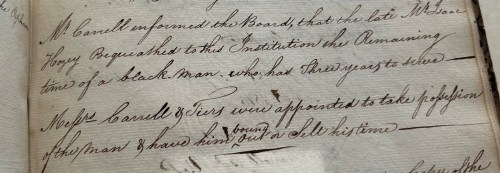 Mr. Carrell informed the Board, that the late Mr. Isaac
Hozey Bequeathed to this Institution the Remaining
time of a black man who has Three years to serve
Messrs. Carrell & Tiers were appointed to take possession
of the man & have him bound out or Sell his time
of the